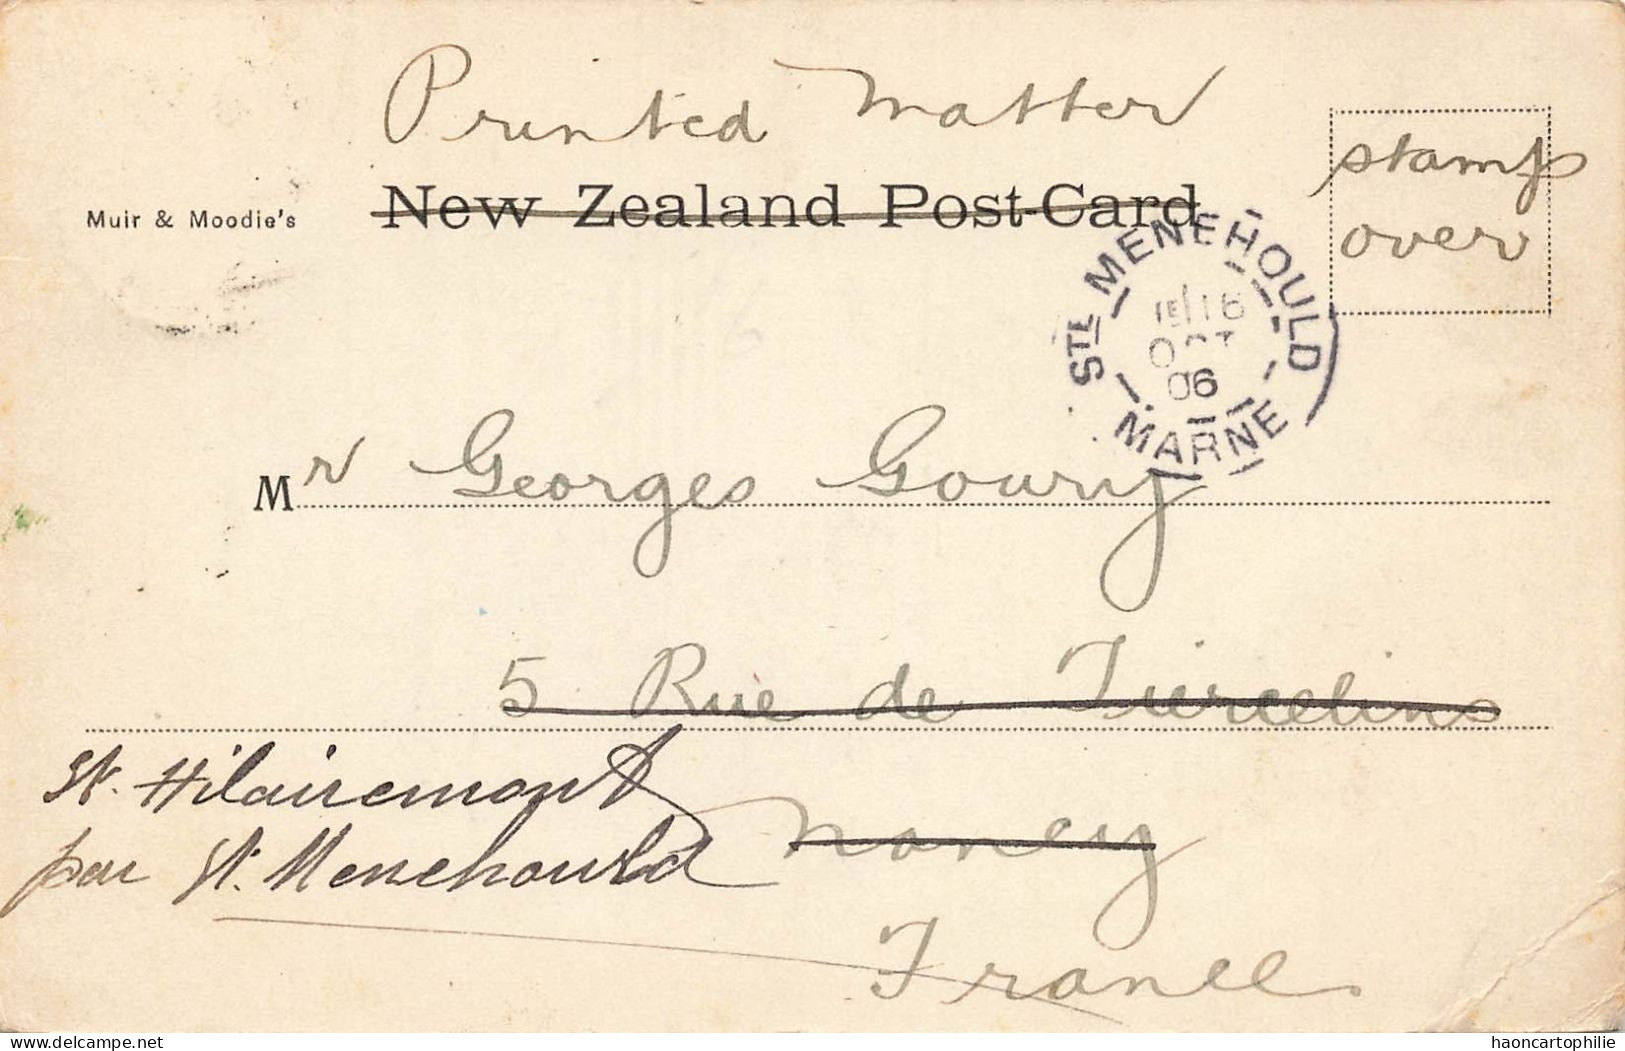 Printed matter
Muir & Moodie's
New Zealand Post-Card
stamp
over
STE MENEHOULD
16
OCT
06
MARNE
Mr Georges Goury
5 Rue de Tiercelins
St. Hilairemont
par St. Menehould
Nancy
France
delcampe.net
haoncartophilie